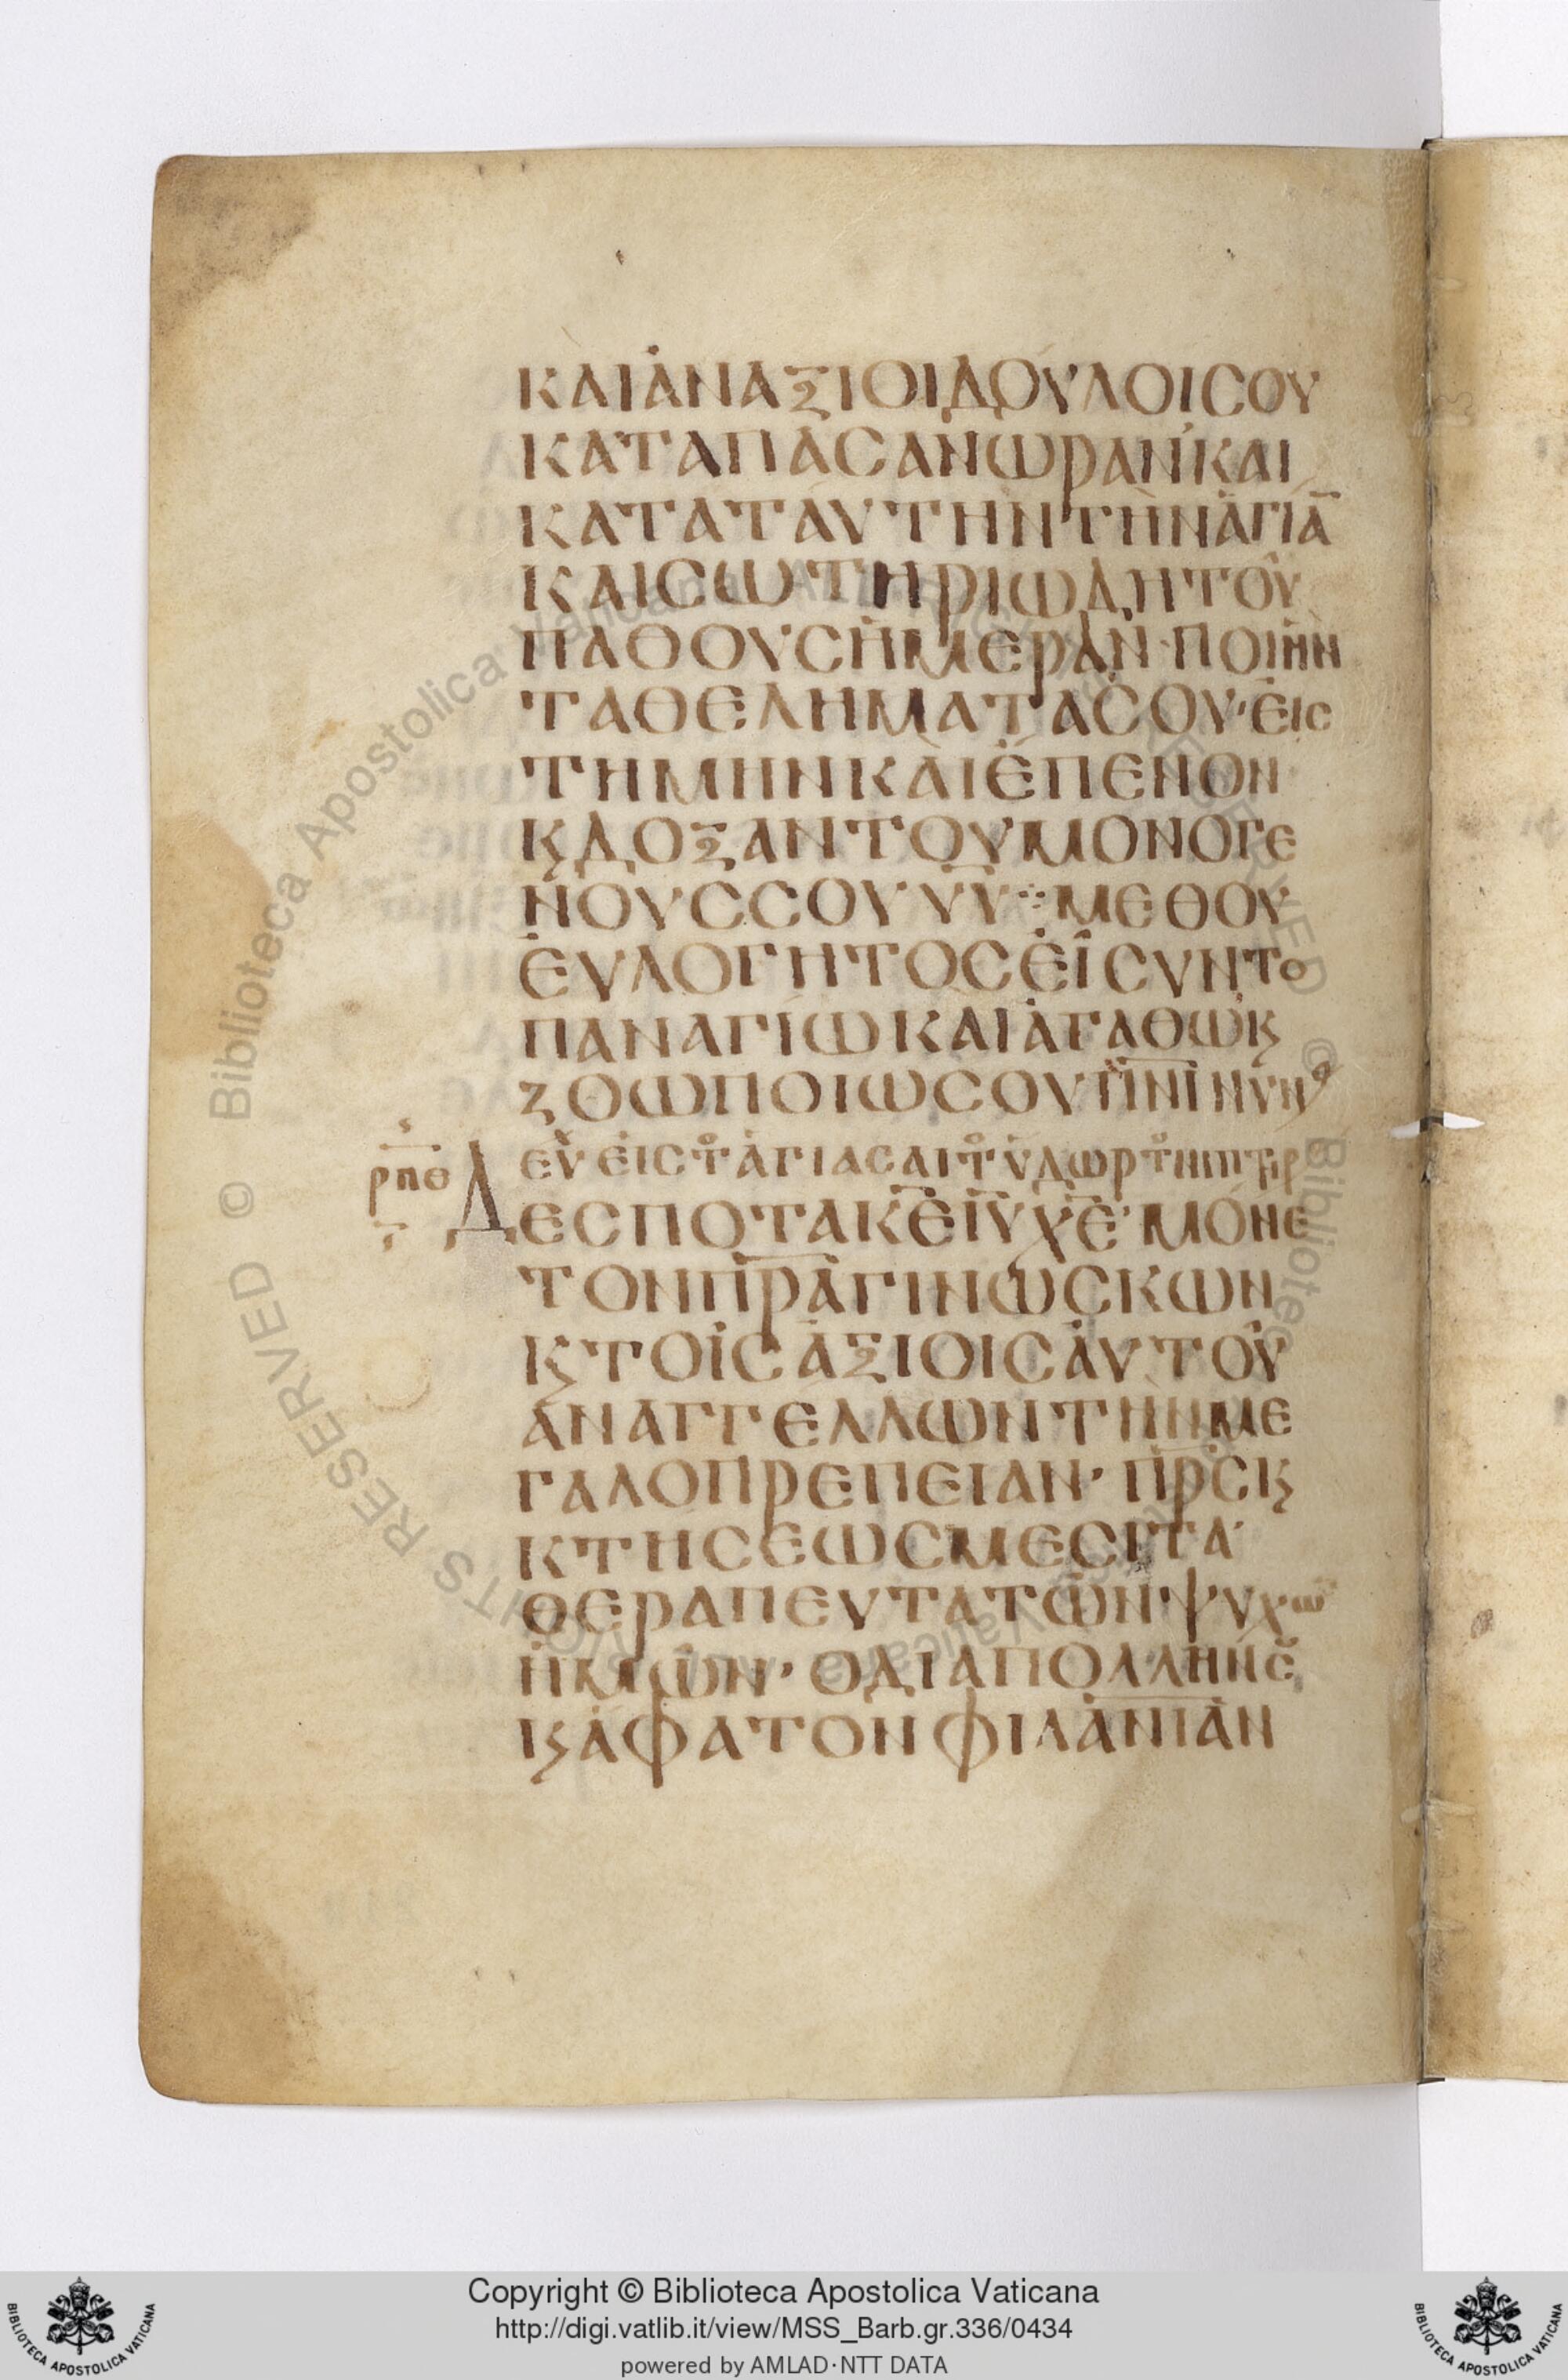 ΚΑΙΑΝΑΞΙΟΙΔΟΥΛΟΙϹΟΥ
ΚΑΤΑΠΑϹΑΝΩΡΑΝΚΑΙ
ΚΑΤΑΤΑΥΤΗΝΤΗΝΑΓΙΑ̅
ΚΑΙϹΩΤΗΡΙΩΔΗΤΟΥ
ΠΑΘΟΥϹΗΜΕΡΑΝ·ΠΟΙΗΝ
ΤΑΘΕΛΗΜΑΤΑϹΟΥ·ΕΙϹ
ΤΗΜΗΝΚΑΙΕΠΕΝΟΝ
ΚϚΔΟΞΑΝΤΟΥΜΟΝΟΓΕ
ΝΟΥϹϹΟΥΥ̅Υ̅·:·ΜΕΘΟΥ
ΕΥΛΟΓΗΤΟϹΕΙϹΥΝΤΟ
ΠΑΝΑΓΙΩΚΑΙΑΓΑΘΩΚϚ
ΖΟΩΠΟΙΩϹΟΥΠ̅Ν̅Ι̅ΝΥΝ
ρπθ
ΕΥ ΕΙϹΤΟΑΓΙΑϹΑΙΤΟΥΔΩΡΤΟ
ΔΕϹΠΟΤΑΚ̅Ε̅Ι̅Υ̅Χ̅Ε̅·ΜΟΝΕ
ΤΟΝΠ̅Ρ̅Α̅ΓΙΝΩϹΚΩΝ
ΚϚΤΟΙϹΑΞΙΟΙϹΑΥΤΟΥ
ΑΝΑΓΓΕΛΛΩΝΤΗΝΜΕ
ΓΑΛΟΠΡΕΠΕΙΑΝ·Π̅Ρ̅ϹΚϚ
ΚΤΗϹΕΩϹΜΕϹΙΤΑ·
ΘΕΡΑΠΕΥΤΑΤΩΝ·ΨΥΧΩ
ΗΜΩΝ·ΟΔΙΑΠΟΛΛΗΝϹ
ΚϚΑΦΑΤΟΝΦΙΛΑ̅Ν̅Ι̅ΑΝ
Copyright © Biblioteca Apostolica Vaticana
http://digi.vatlib.it/view/MSS_Barb.gr.336/0434
powered by AMLAD·NTT DATA
BIBLIOTECA APOSTOLICA VATICANA
BIBLIOTECA APOSTOLICA VATICANA